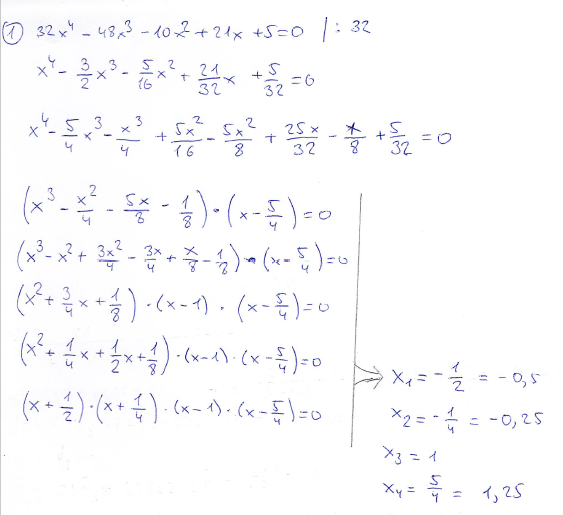 ① 32x⁴ - 48x³ - 10x² + 21x + 5 = 0 / : 32
x⁴ - 3/2 x³ - 5/16 x² + 21/32 x + 5/32 = 0
x⁴ - 5/4 x³ - x³/4 + 5x²/16 - 5x²/8 + 25x/32 - x/8 + 5/32 = 0
(x³ - x²/4 - 5x/8 - 1/8) · (x - 5/4) = 0
(x³ - x² + 3x²/4 - 3x/4 + x/8 - 1/8) · (x - 5/4) = 0
(x² + 3/4 x + 1/8) · (x - 1) · (x - 5/4) = 0
(x² + 1/4 x + 1/2 x + 1/8) · (x - 1) · (x - 5/4) = 0
(x + 1/2) · (x + 1/4) · (x - 1) · (x - 5/4) = 0
x₁ = - 1/2 = - 0,5
x₂ = - 1/4 = - 0,25
x₃ = 1
x₄ = 5/4 = 1,25